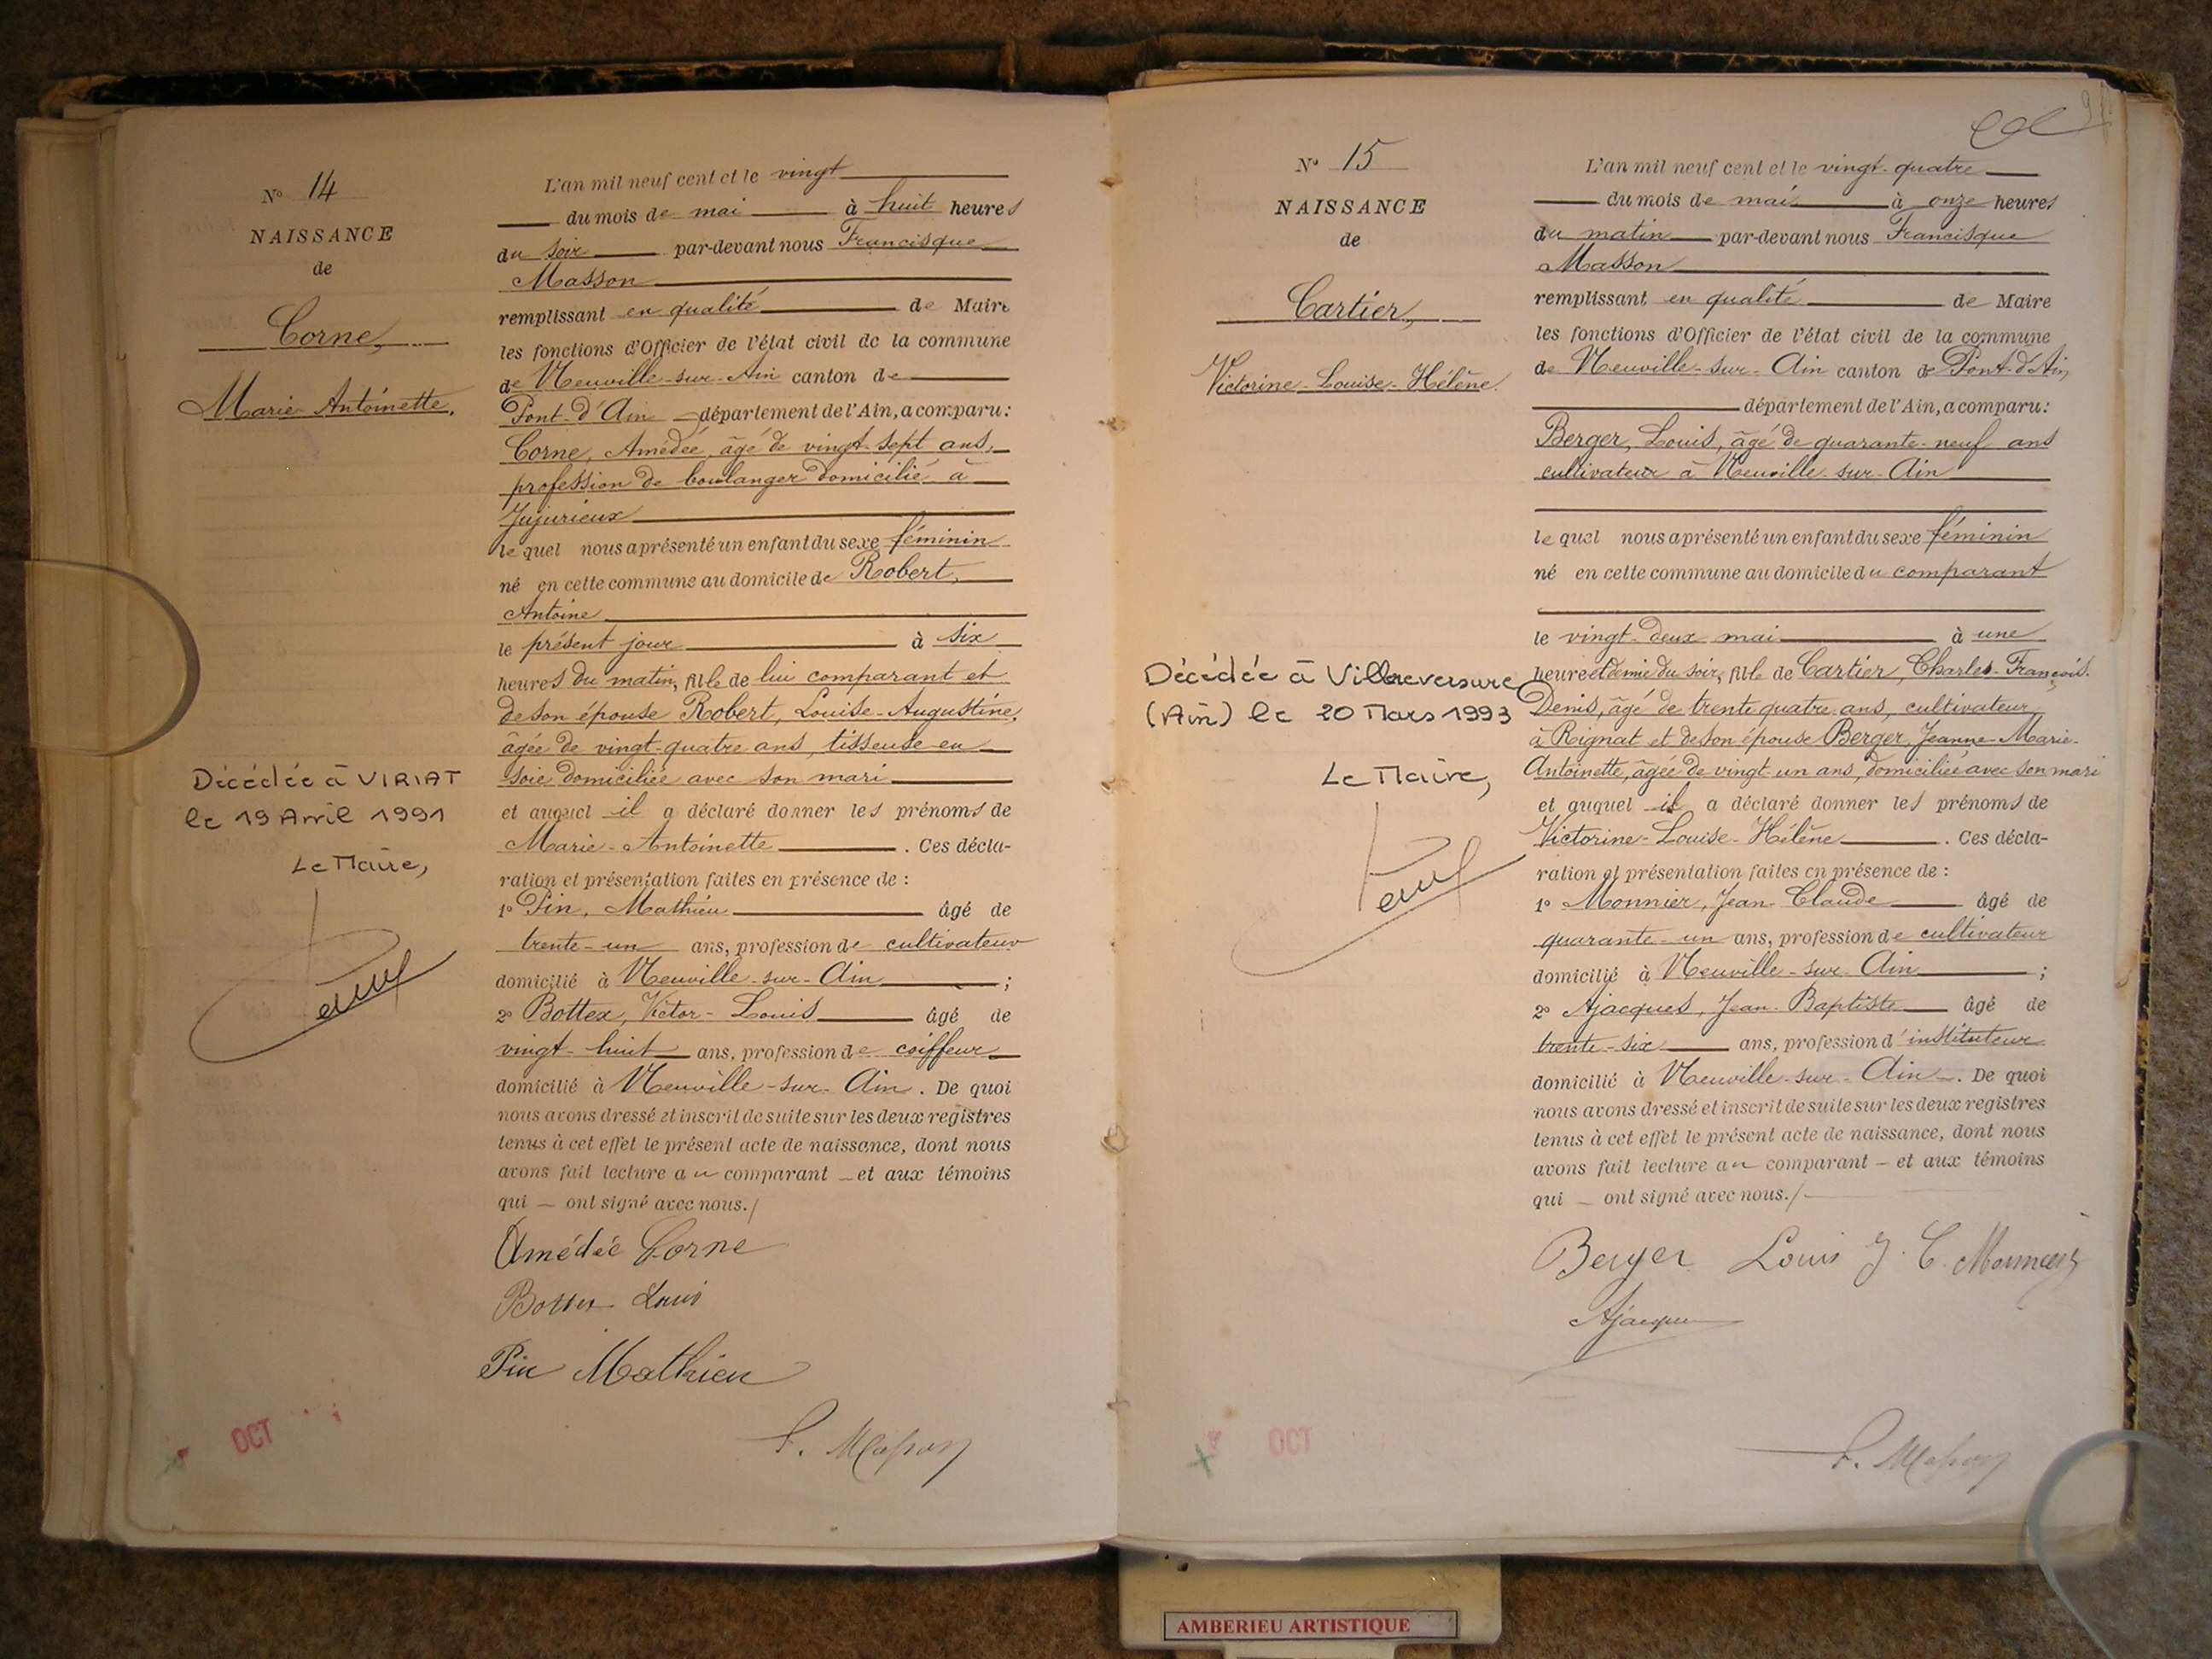 N° 14
NAISSANCE
de
Corne,
Marie-Antoinette.
Décédée à VIRIAT
le 19 Avril 1991
Le Maire,
L'an mil neuf cent et le vingt
du mois de mai à huit heures
du soir par-devant nous Francisque
Masson
remplissant en qualité de Maire
les fonctions d'Officier de l'état civil de la commune
de Neuville-sur-Ain canton de
Pont-d'Ain département de l'Ain, a comparu :
Corne, Amédée, âgé de vingt-sept ans,
profession de boulanger domicilié à
Jujurieux
lequel nous a présenté un enfant du sexe féminin
né en cette commune au domicile de Robert,
Antoine
le présent jour à six
heures du matin, fille de lui comparant et
de son épouse Robert, Louise-Augustine,
âgée de vingt-quatre ans, tisseuse en
soie domiciliée avec son mari
et auquel il a déclaré donner les prénoms de
Marie-Antoinette. Ces décla-
ration et présentation faites en présence de :
1° Pin, Mathieu âgé de
trente-un ans, profession de cultivateur
domicilié à Neuville-sur-Ain ;
2° Bottex, Victor-Louis âgé de
vingt-huit ans, profession de coiffeur
domicilié à Neuville-sur-Ain. De quoi
nous avons dressé et inscrit de suite sur les deux registres
tenus à cet effet le présent acte de naissance, dont nous
avons fait lecture au comparant – et aux témoins
qui – ont signé avec nous./
Amédée Corne
Bottex Louis
Pin Mathieu
F. Masson
OCT
N° 15
NAISSANCE
de
Cartier,
Victorine-Louise-Hélène.
Décédée à Villereversure
(Ain) le 20 Mars 1993
Le Maire,
L'an mil neuf cent et le vingt-quatre
du mois de mai à onze heures
du matin par-devant nous Francisque
Masson
remplissant en qualité de Maire
les fonctions d'Officier de l'état civil de la commune
de Neuville-sur-Ain canton de Pont-d'Ain,
département de l'Ain, a comparu :
Berger, Louis, âgé de quarante-neuf ans
cultivateur à Neuville-sur-Ain
lequel nous a présenté un enfant du sexe féminin
né en cette commune au domicile du comparant
le vingt-deux mai à une
heure et demie du soir, fille de Cartier, Charles-François-
Denis, âgé de trente quatre ans, cultivateur
à Rignat et de son épouse Berger, Jeanne-Marie-
Antoinette, âgée de vingt-un ans, domiciliée avec son mari
et auquel il a déclaré donner les prénoms de
Victorine-Louise-Hélène. Ces décla-
ration et présentation faites en présence de :
1° Monnier, Jean-Claude âgé de
quarante-un ans, profession de cultivateur
domicilié à Neuville-sur-Ain ;
2° Ajacques, Jean-Baptiste âgé de
trente-six ans, profession d'instituteur
domicilié à Neuville-sur-Ain. De quoi
nous avons dressé et inscrit de suite sur les deux registres
tenus à cet effet le présent acte de naissance, dont nous
avons fait lecture au comparant – et aux témoins
qui – ont signé avec nous./
Berger Louis J. C. Monnier
Ajacques
F. Masson
OCT
AMBERIEU ARTISTIQUE